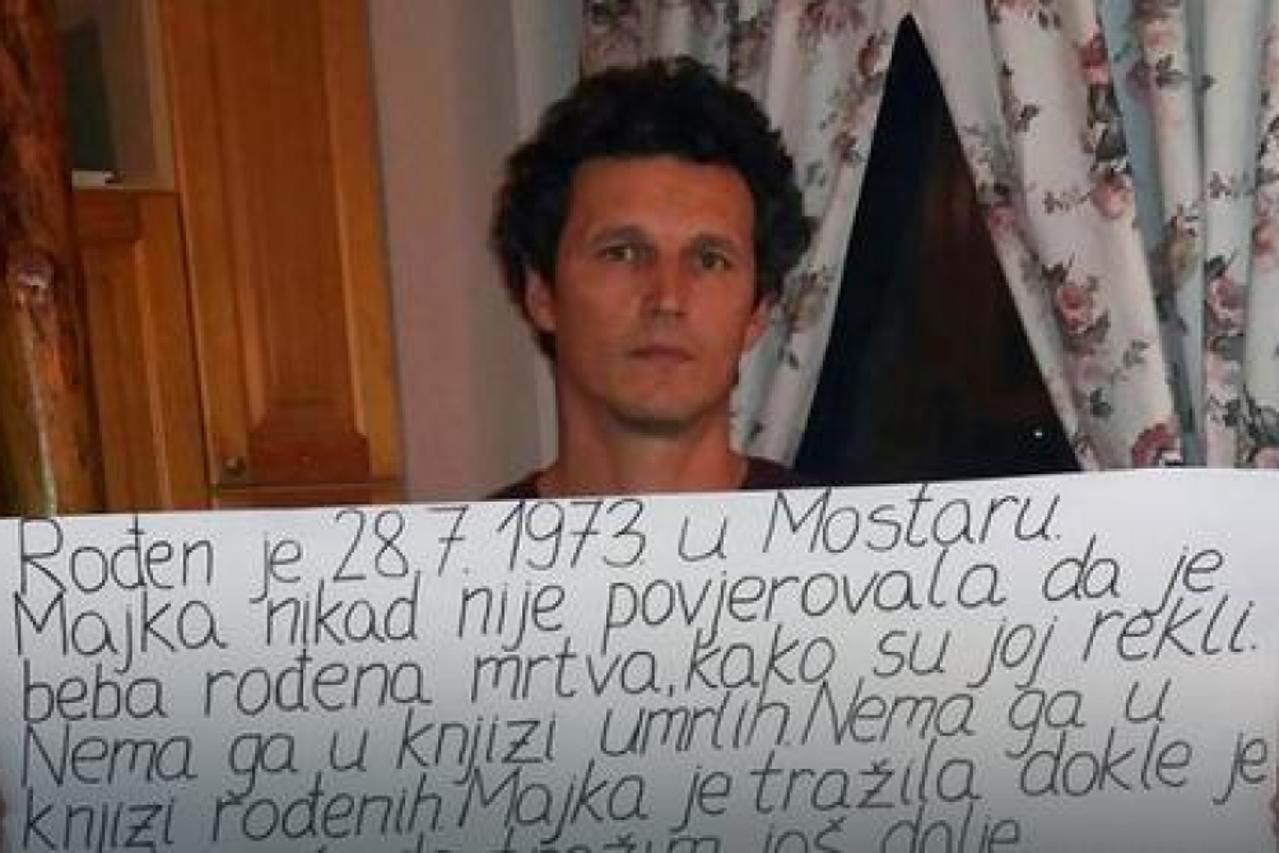 Rođen je 28.7.1973. u Mostaru.
Majka nikad nije povjerovala da je
beba rođena mrtva, kako su joj rekli.
Nema ga u knjizi umrlih. Nema ga u
knjizi rođenih. Majka je tražila dokle je
da tražim još dalje